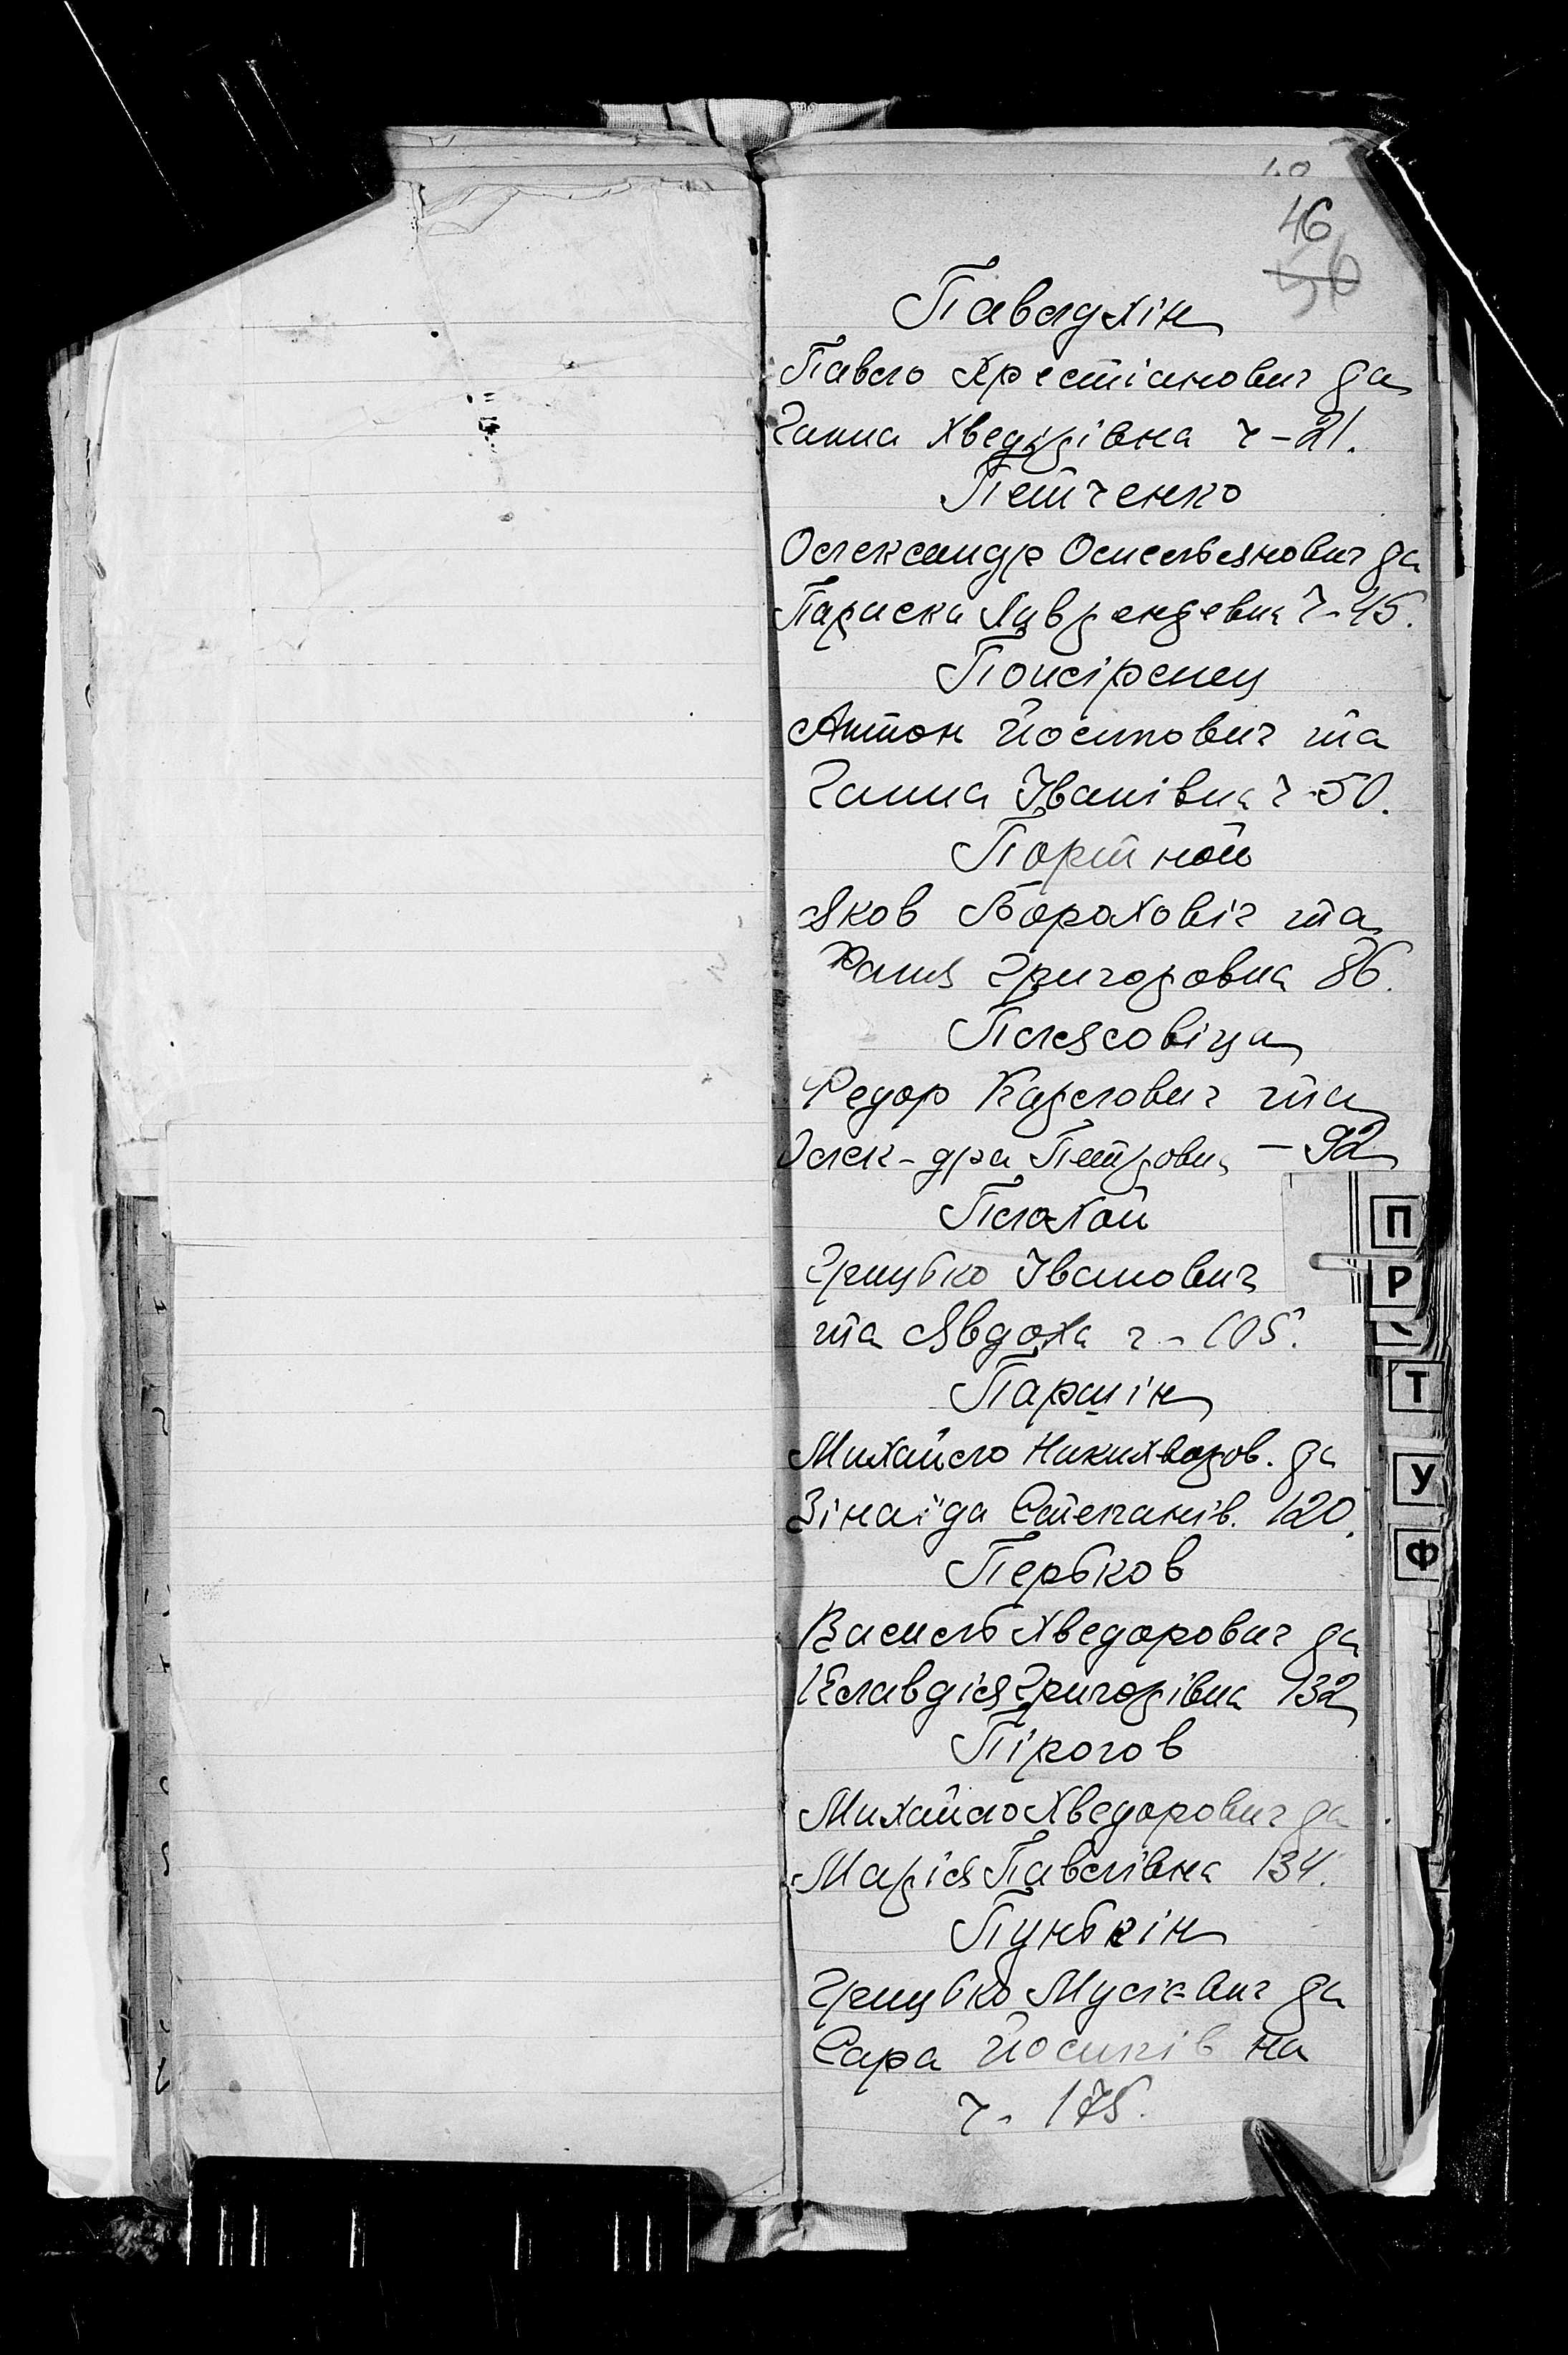 46
56
Павлухін
Павло Хрестіанович да
Ганна Хведірівна ч-21.
Петченко
Олександр Омельянович да
Параска Лаврендевна ч-45.
Антон Йосипович та
Ганна Іванівна ч-50.
Портной
Яков Борохович та
Фаня Григоровна 86.
Плясовіца
Федор Карлович та
Олек-дра Петровн, - 92
Плохой
Грицько Іванович
та Явдоха ч-105.
Паршін
Михайло Никихворов. да
Зінаїда Степанів. 120.
Перьков
Василь Хведорович да
Клавдія Григорівна 132
Пірогов
Михайло Хведорович да
Марія Павлівна 134.
Пунькін
Грицько Мусієвич да
Сара Йосипівна
ч- 175.
П
Р
Т
У
Ф